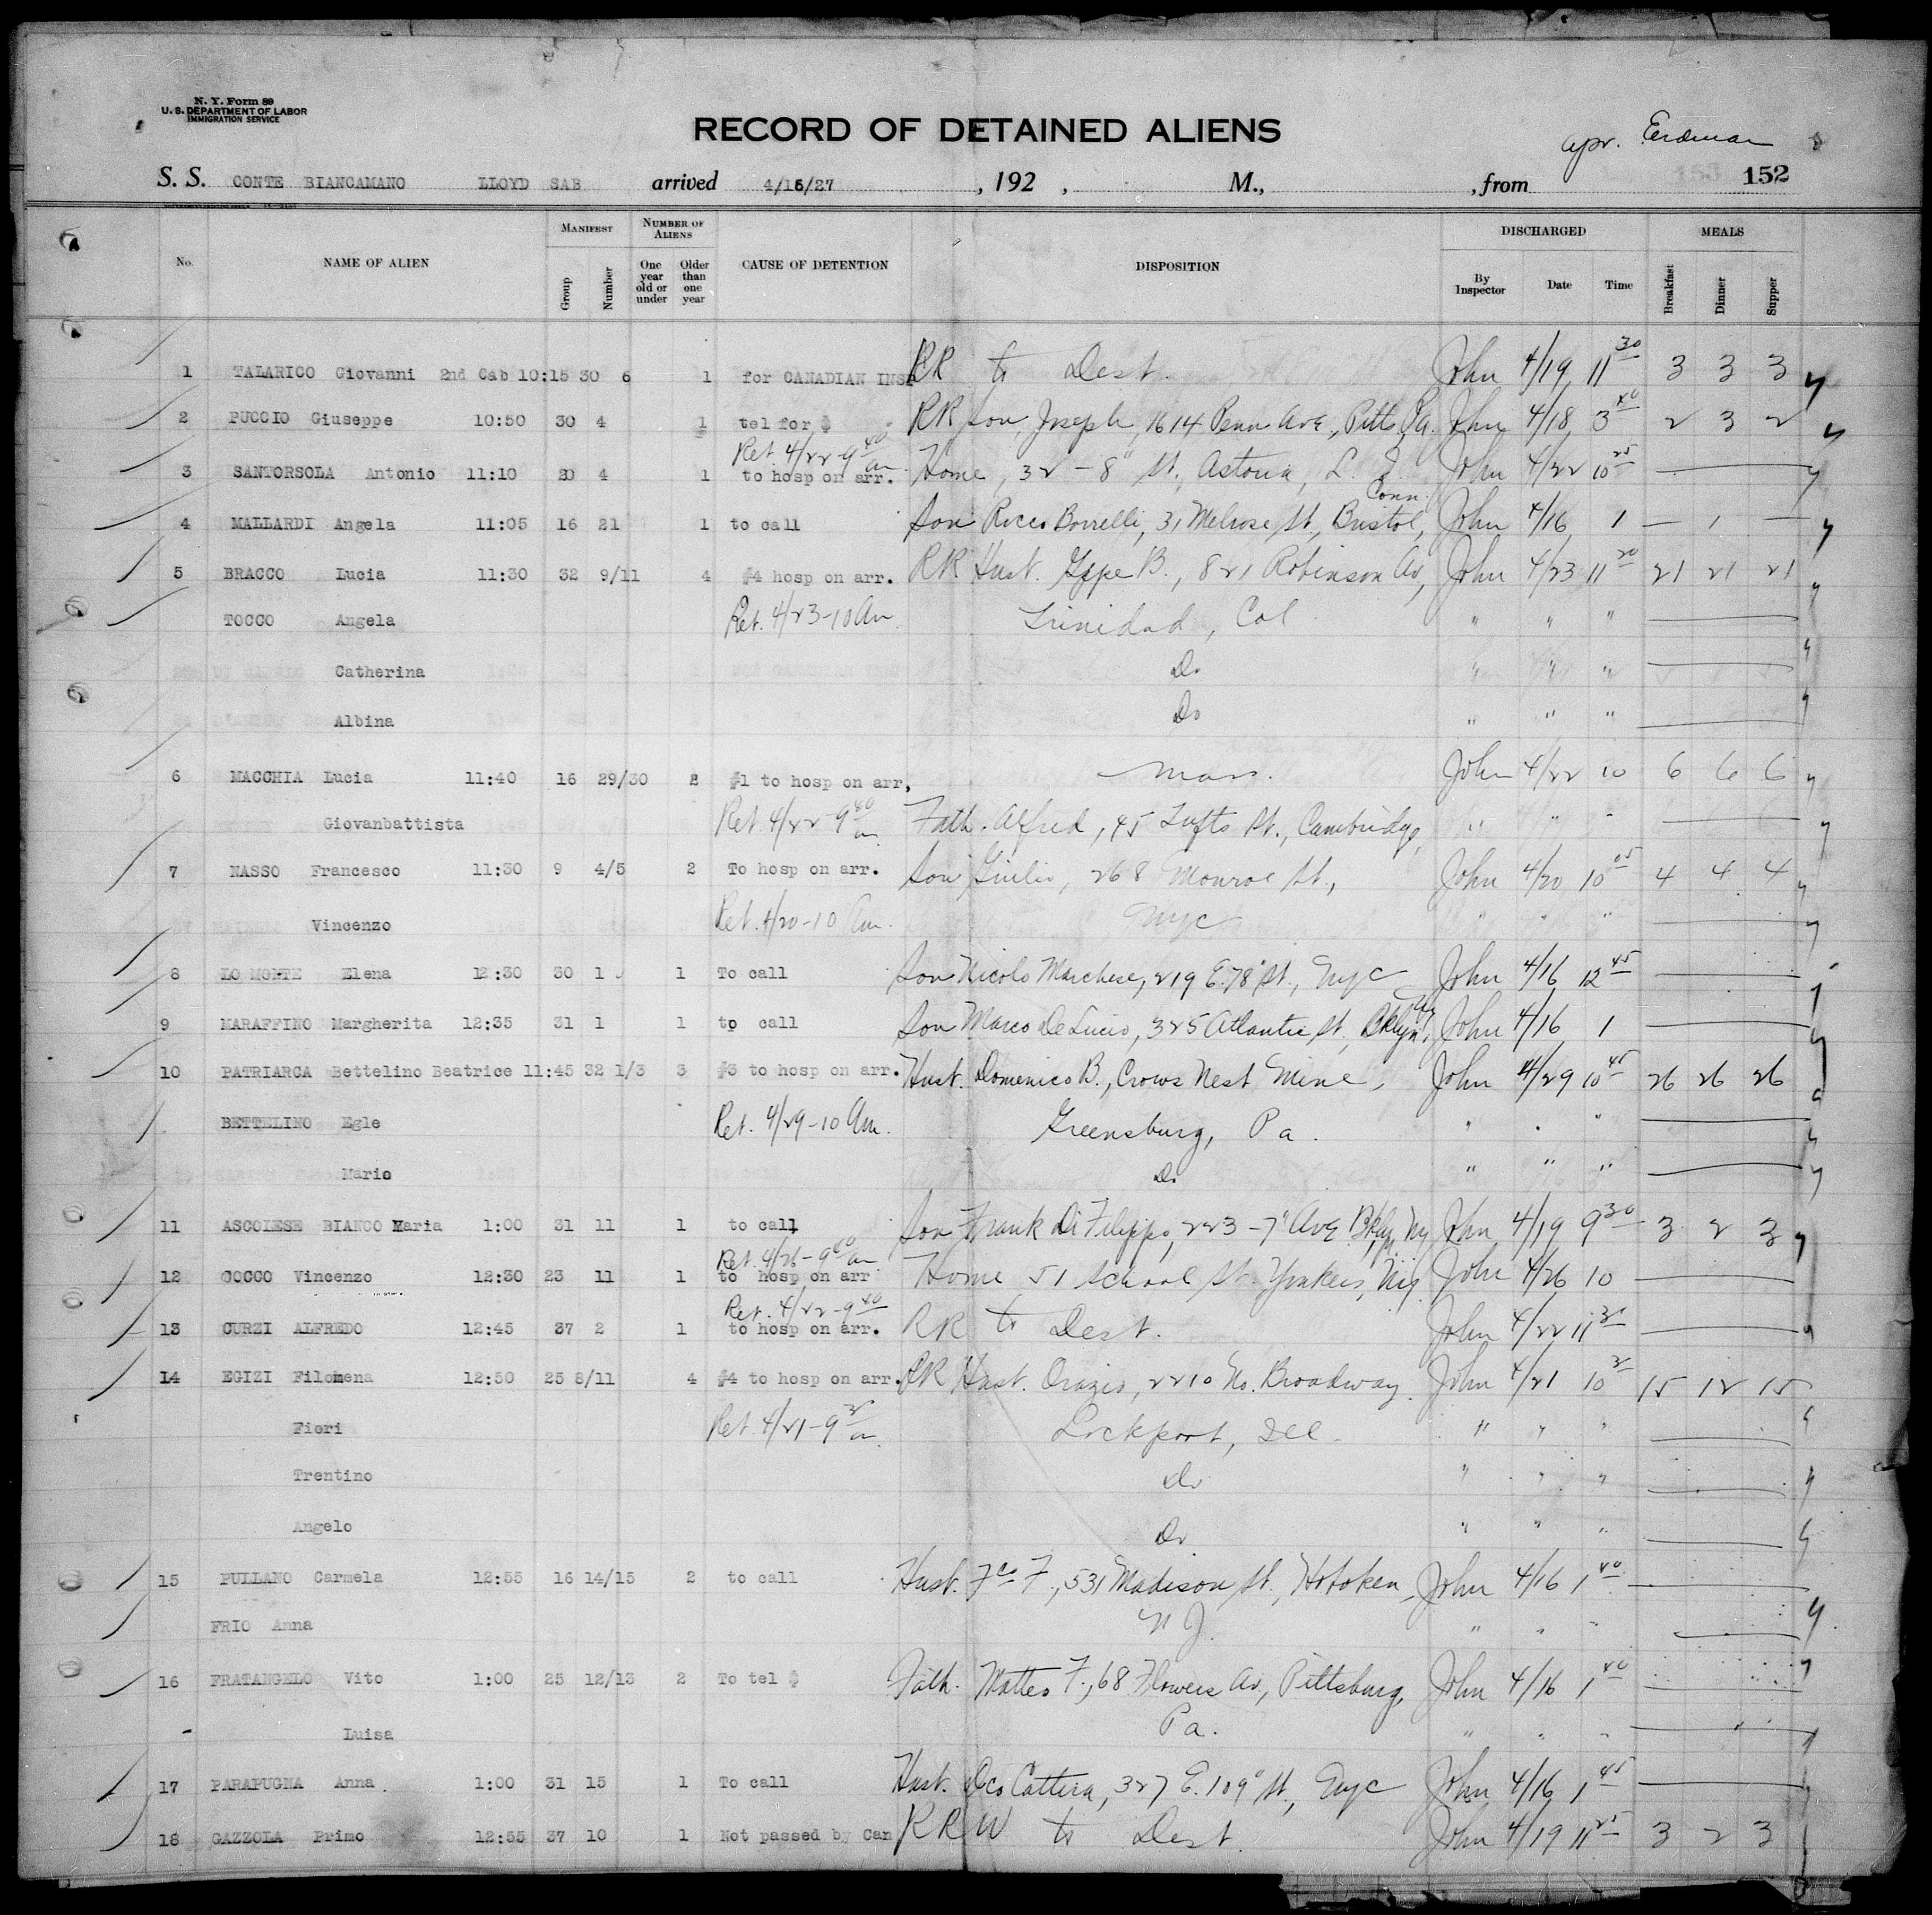 N. Y. Form 89
U. S. DEPARTMENT OF LABOR
IMMIGRATION SERVICE
RECORD OF DETAINED ALIENS
apr. Erdman
S. S. CONTE BIANCAMANO LLOYD SAB arrived 4/16/27 , 192 , M., , from 152
No. NAME OF ALIEN MANIFEST Group Number NUMBER OF ALIENS One year old or under Older than one year CAUSE OF DETENTION DISPOSITION DISCHARGED By Inspector Date Time MEALS Breakfast Dinner Supper
1 TALARICO Giovanni 2nd Cab 10:15 30 6 1 for CANADIAN INSP RR to Dest. John 4/19 11 30 3 3 3
2 PUCCIO Giuseppe 10:50 30 4 1 tel for $ RR Son, Joseph, 1614 Penn Ave, Pitts, Pa. John 4/18 3 40 2 3 2
Ret. 4/22-9 40 am
3 SANTORSOLA Antonio 11:10 20 4 1 to hosp on arr. Home, 32 - 8" St., Astoria, L. I. John 4/22 10 25
4 MALLARDI Angela 11:05 16 21 1 to call Son Rocco Borrelli, 31 Melrose St., Bristol, Conn. John 4/16 1 — 1 —
5 BRACCO Lucia 11:30 32 9/11 4 #4 hosp on arr. RR Husb. Gspe B., 821 Robinson Av, John 4/23 11 20 21 21 21
TOCCO Angela Ret. 4/23-10 Am. Trinidad, Col " " "
Catherina Do " " "
Albina Do " " "
6 MACCHIA Lucia 11:40 16 29/30 2 #1 to hosp on arr, Mass. John 4/22 10 6 6 6
Giovanbattista Ret. 4/22-9 40 am Fath. Alfred, 45 Tufts St., Cambridge, " " "
7 NASSO Francesco 11:30 9 4/5 2 To hosp on arr. Son Giulio, 268 Monroe St., John 4/20 10 05 4 4 4
Vincenzo Ret. 4/20-10 Am. NYC " " "
8 LO MONTE Elena 12:30 30 1 1 To call Son Nicolo Marchese, 219 E. 78" St., NYC John 4/16 12 45
9 MARAFFINO Margherita 12:35 31 1 1 to call Son Marco De Lucio, 325 Atlantic St, Bklyn, NY John 4/16 1
10 PATRIARCA Bettelino Beatrice 11:45 32 1/3 3 #3 to hosp on arr. Husb. Domenico B., Crows Nest Mine, John 4/29 10 45 26 26 26
BETTELINO Egle Ret. 4/29-10 Am. Greensburg, Pa. " " "
Mario Do " " "
11 ASCOLESE BIANCO Maria 1:00 31 11 1 to call Son Frank Di Filippo, 223-7" Ave Bklyn, Ny John 4/19 9 30 3 2 3
Ret. 4/26-9 40 am
12 COCCO Vincenzo 12:30 23 11 1 to hosp on arr Home 51 School St. Yonkers, Ny John 4/26 10
Ret. 4/22-9 40
13 CURZI ALFREDO 12:45 37 2 1 to hosp on arr. RR to Dest. John 4/22 11 30
14 EGIZI Filomena 12:50 25 8/11 4 #4 to hosp on arr. RR Husb. Orazio, 2210 No. Broadway John 4/21 10 15 12 15
Fiori Ret. 4/21-9 am Lockport, Ill. " " "
Trentino Do " " "
Angelo Do " " "
15 PULLANO Carmela 12:55 16 14/15 2 to call Husb. Fco F., 531 Madison St., Hoboken, John 4/16 1 40
FRIO Anna N J. " " "
16 FRATANGELO Vito 1:00 25 12/13 2 To tel $ Fath. Matteo F., 68 Flowers Av, Pittsburg, John 4/16 1 40
Luisa Pa. " " "
17 PARAPUGNA Anna 1:00 31 15 1 To call Husb. Dco Cattera, 327 E. 109" St., NYC John 4/16 1 45
18 GAZZOLA Primo 12:55 37 10 1 Not passed by Can RRW to Dest. John 4/19 11 25 3 2 3